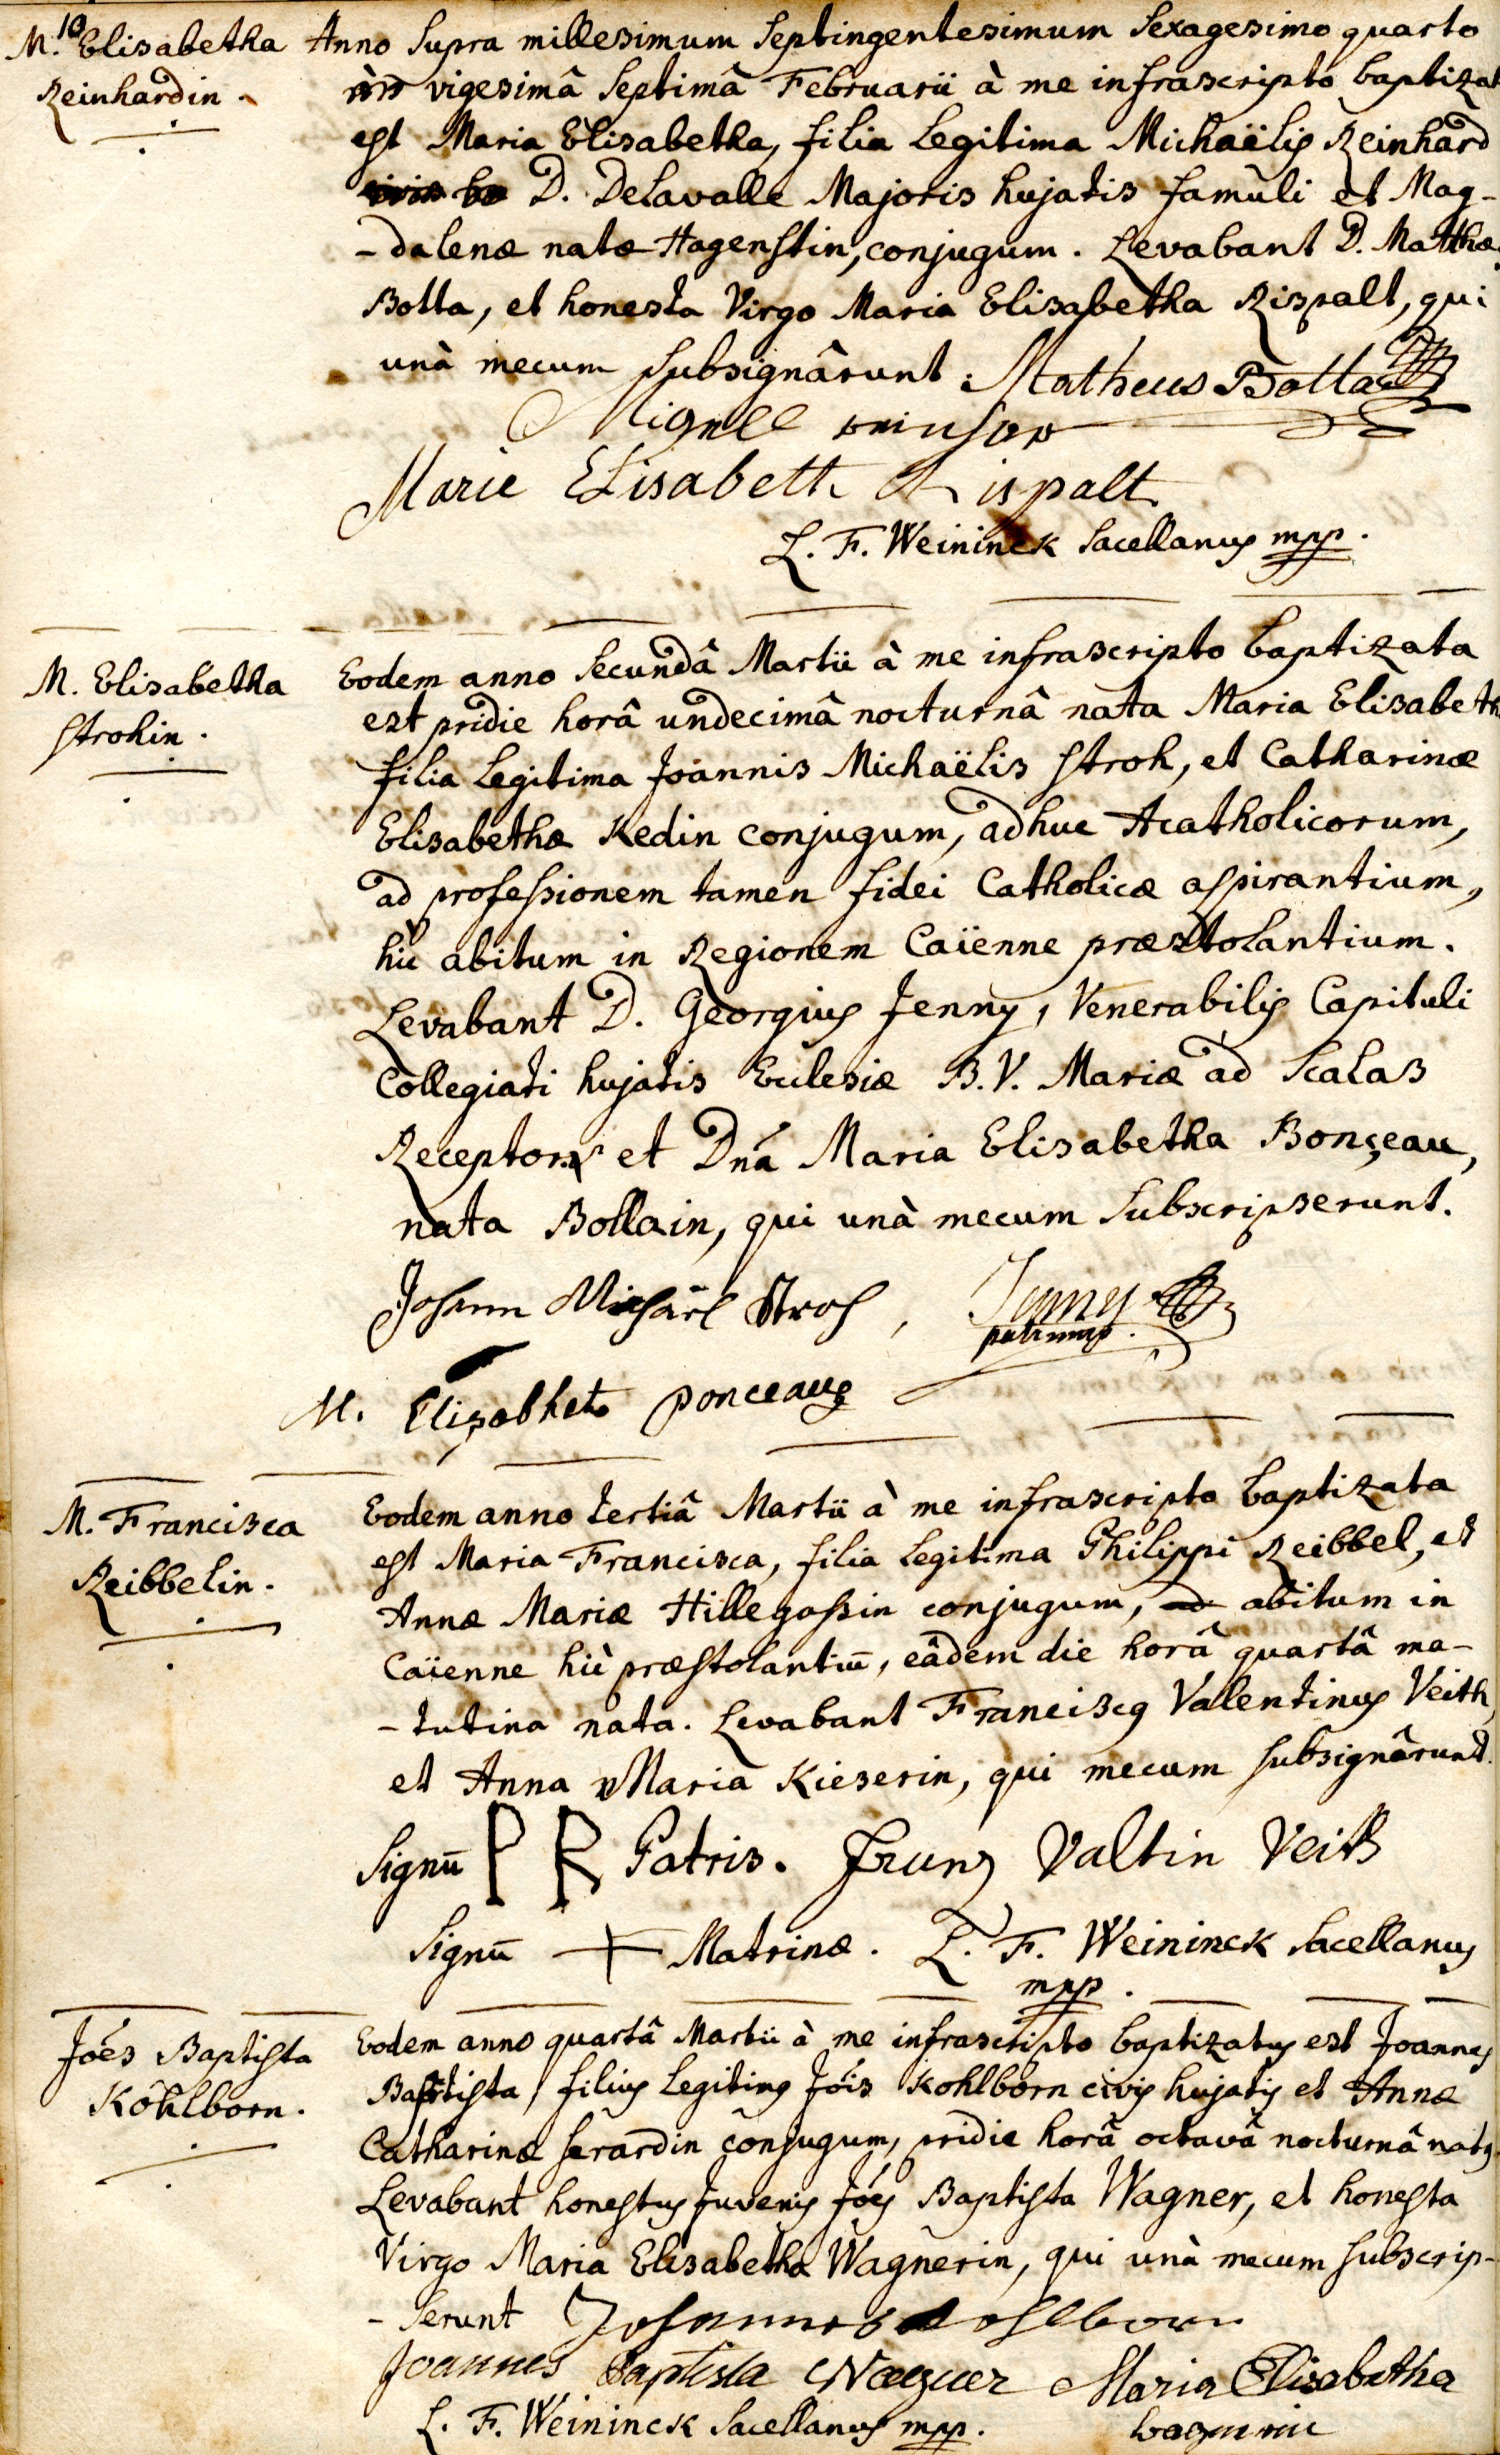 M. Elisabetha
Reinhardin.
Anno Supra millesimum Septingentesimum Sexagesimo quarto
vigesimâ Septimâ Februarii à me infrascripto baptizat
est Maria Elisabetha, filia Legitima Michaëlis Reinhard
D. Delavalle Majoris hujatis famuli et Mag-
-dalenæ natæ Hagenstin, conjugum. Levabant D. Matthæ
Botta, et honesta Virgo Maria Elisabetha Rispalt, qui
unà mecum subsignârunt. Matheus Botta
Marie Elisabeth Rispalt
L. F. Weininck Sacellanus mpp.
M. Elisabetha
Strohin.
Eodem anno Secundâ Martii à me infrascripto baptizata
est pridie horâ undecimâ nocturnâ nata Maria Elisabeth
filia Legitima Joannis Michaëlis Stroh, et Catharinæ
Elisabethæ Kedin conjugum, adhuc Acatholicorum,
ad professionem tamen fidei Catholicæ aspirantium,
hìc abitum in Regionem Caïenne præstolantium.
Levabant D. Georgius Jenny, Venerabilis Capituli
Collegiati hujatis Ecclesiæ B. V. Mariæ ad Scalas
Receptor et Dña Maria Elisabetha Bonçeau,
nata Bollain, qui unà mecum Subscripserunt.
Johann Michäel Stroh, Jenny
patrinus.
M. Elizabhet ponceau
M. Francisca
Reibbelin.
Eodem anno tertiâ Martii à me infrascripto baptizata
est Maria Francisca, filia Legitima Philippi Reibbel, et
Annæ Mariæ Hillegassin conjugum, abitum in
Caïenne hìc præstolantiū, eâdem die horâ quartâ ma-
-tutina nata. Levabant Franciscus Valentinus Veith,
et Anna Maria Kieserin, qui mecum subsignârunt.
Signū P R Patris. Franz Valtin Veith
Signū + Matrinæ. L. F. Weininck Sacellanus
mpp.
Jões Baptista
Köhlborn.
Eodem anno quartâ Martii à me infrascripto baptizatus est Joannes
Baptista, filius Legitimus Jõis Kohlborn civis hujatis et Annæ
Catharinæ serardin conjugum, pridie horâ octavâ nocturnâ natus.
Levabant honestus Juvenis Jões Baptista Wagner, et honesta
Virgo Maria Elisabetha Wagnerin, qui unà mecum subscrip-
-serunt Johannes Kohlborn
Joannes Baptista Wagner Maria Elisabetha
L. F. Weininck Sacellanus mpp. wagnerin